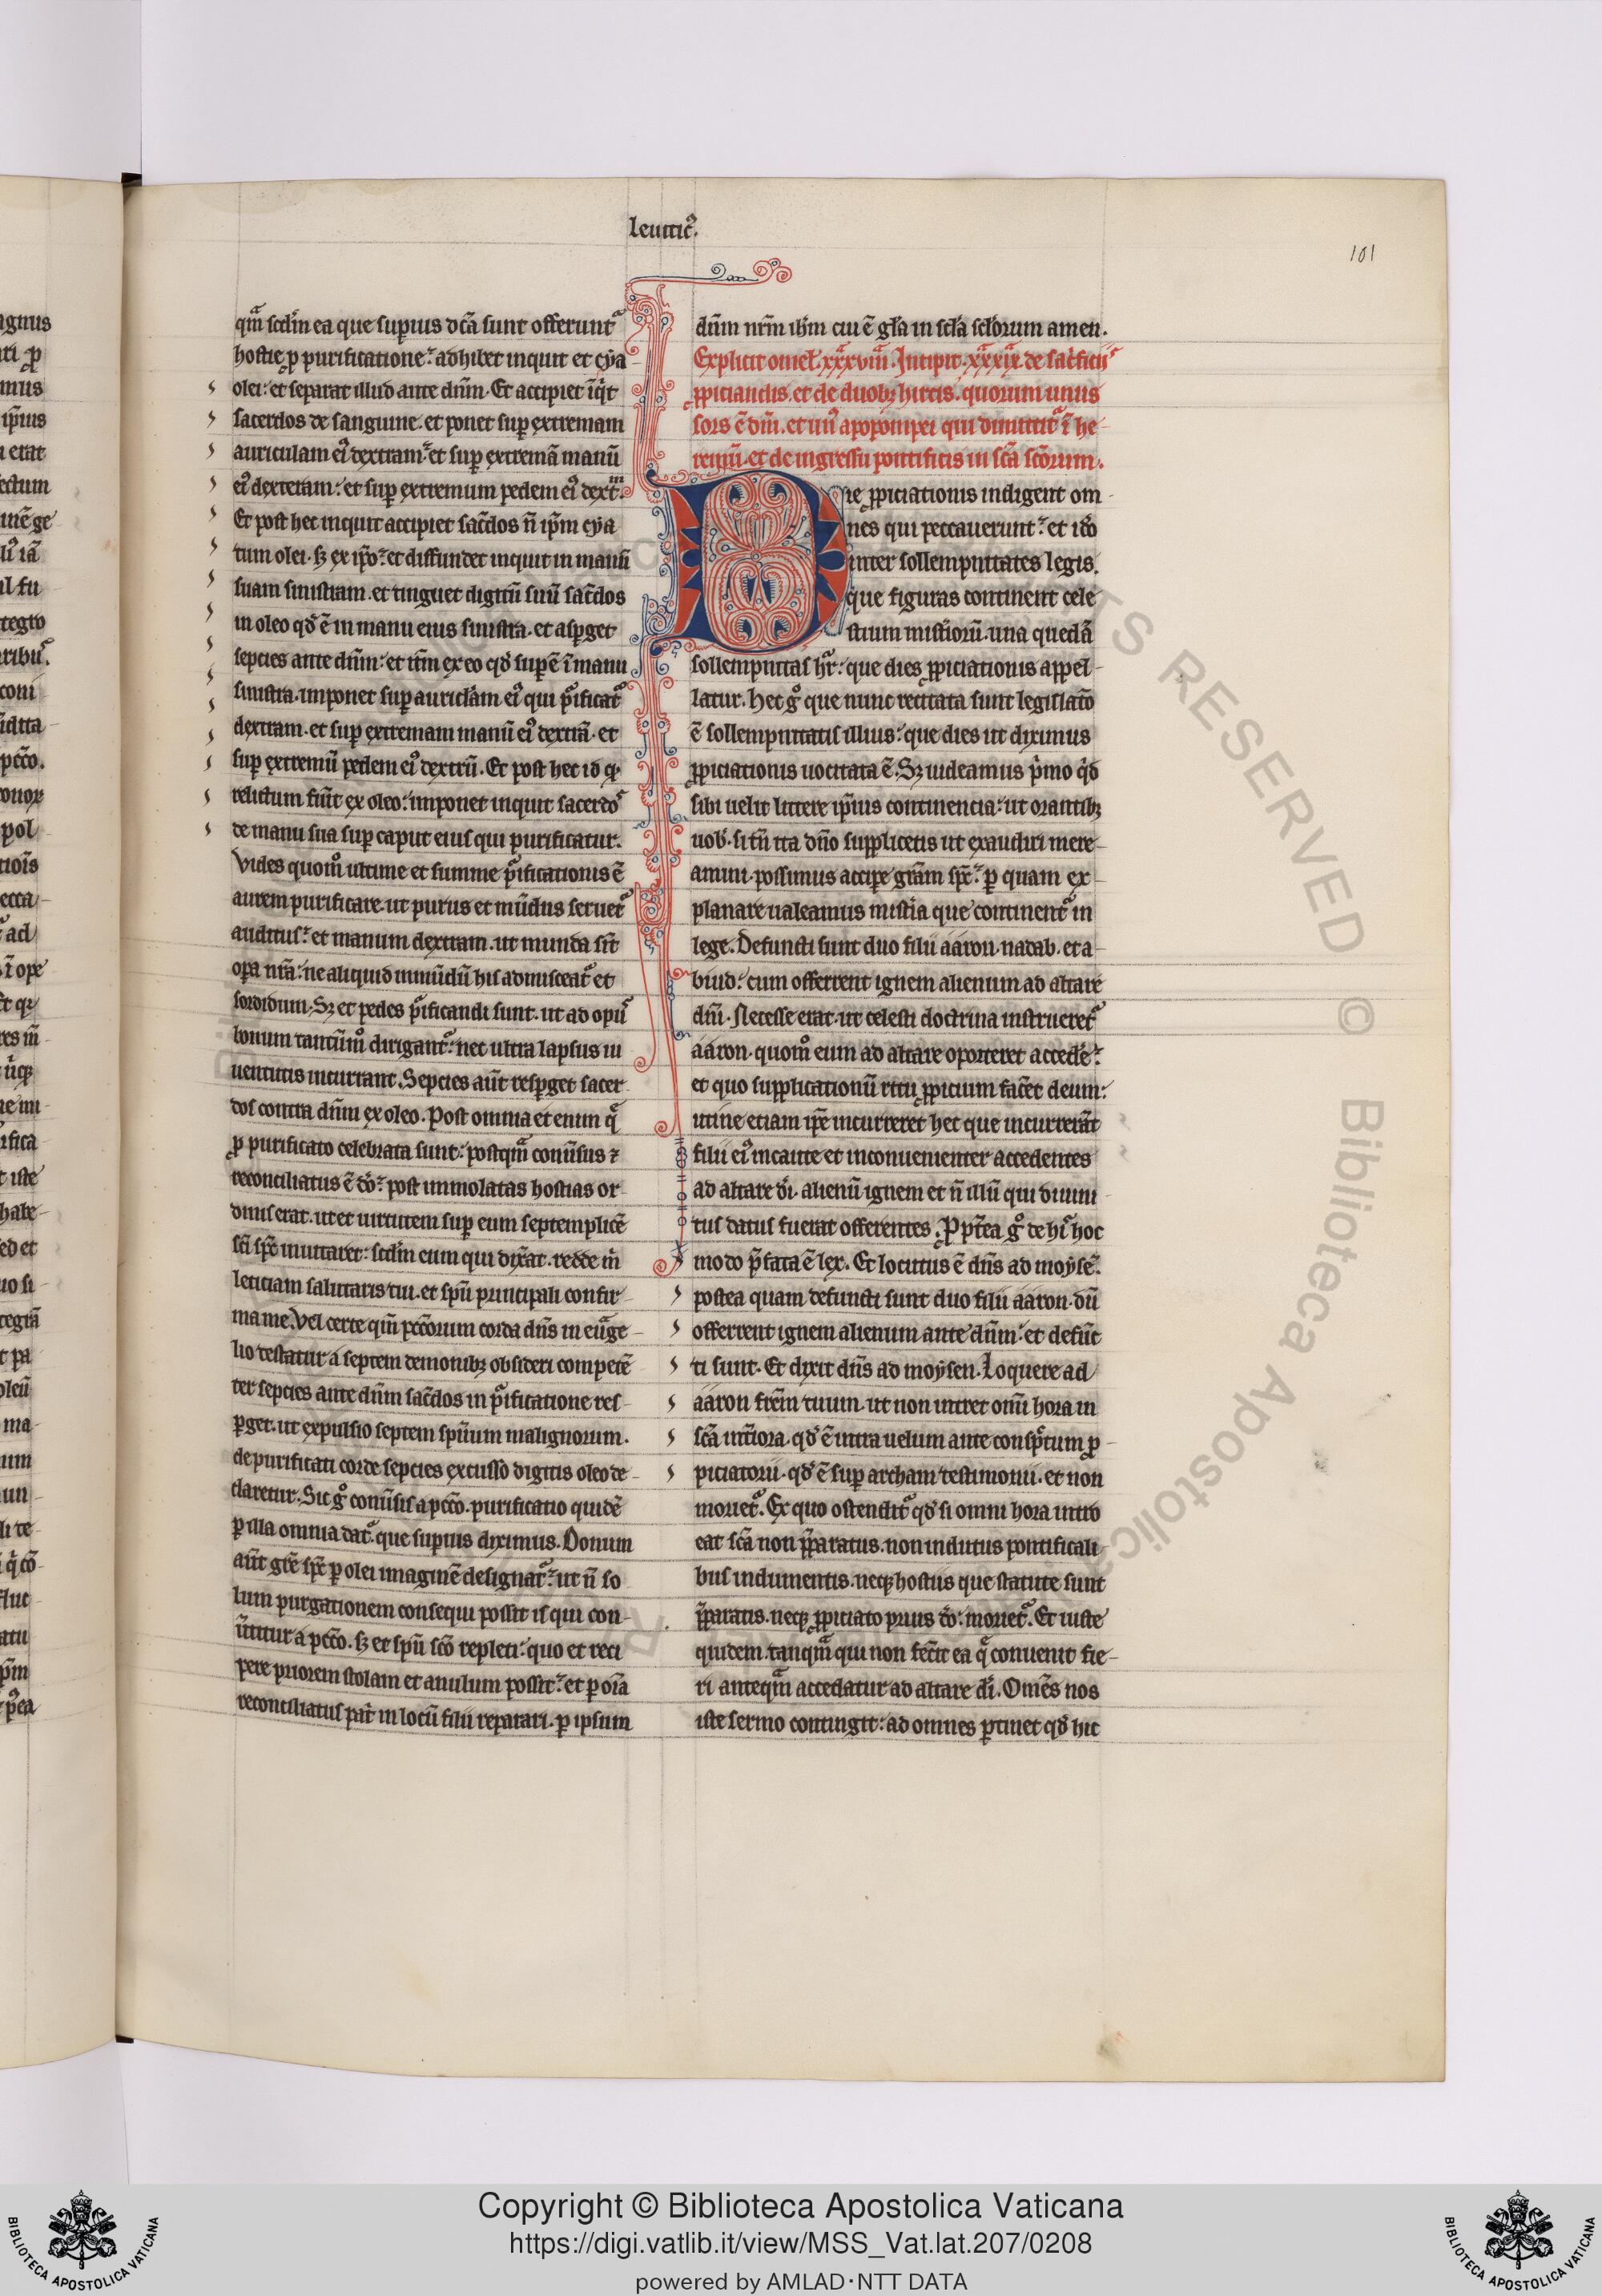 leuitic᷒.
101
qm̄ scd̄m ea que supius dc̄a sunt offerunt᷑
hostie ꝓ purificatione. adhibet inquit et cẏa
olei. et separat illud ante dn̄m. Et accipiet īqͥt
sacerdos de sanguine. et ponet suꝑ extremam
auriculam ei᷒ dextram. et suꝑ extremā manū
ei᷒ dexteram. et suꝑ extremum pedem ei᷒ dext̄.
Et post hec inquit accipiet sac̄dos n̄ ip̄m cẏa
tum olei. sꝫ ex ip̄o. et diffundet inquit in manū
suam sinistram. et tinguet digitū suū sac̄dos
in oleo qd̄ ē in manu eius sinistra. et asꝑget
sepcies ante dn̄m. et itm̄ ex eo qd̄ suꝑ ē ī manu
sinistra. imponet suꝑ auric̄lam ei᷒ qui pͥificat᷑
dextram. et suꝑ extremam manū ei᷒ dextrā. et
suꝑ extremū pedem ei᷒ dextrū. Et post hec id qͩ
relictum fūit ex oleo. imponet inquit sacerdos
de manu sua suꝑ caput eius qui purificatur.
Vides quom̊ ultime et summe pͥificationis ē
aurem purificare. ut purus et mūdus seruet᷑
auditus. et manum dextram. ut munda sīt
oꝑa nr̄a. ne aliquid inmūdū his admisceat᷑ et
sordidum. Sꝫ et pedes pͥificandi sunt. ut ad opus
bonum tantūm̊ dirigant᷑. nec ultra lapsus iu
uentutis incurrant. Sepcies aūt resꝑget sacer
dos contra dn̄m ex oleo. Post omnia etenim q̄
ꝓ purificato celebrata sunt. postqm̄ conūsus ⁊
reconciliatus ē dō. post immolatas hostias or
dinis erat. ut et uirtutem suꝑ eum septemplicē
sc̄i sp̄c inuitaret. scd̄m eum qui dix̄at. redde m̄
leticiam salutaris tui. et sp̄u principali confir
ma me. Vel certe qm̄ pcc̄orum corda dn̄s in euāge
lio testatur a septem demonibꝫ obsideri competē
ter sepcies ante dn̄m sac̄dos in pͥificatione res
ꝑget. ut expulsio septem sp̄uum malignorum.
de purificati corde sepcies excusso digitis oleo de
claretur. Sic gͦ conūsis a pcc̄o. purificatio quidē
ꝑ illa omnia dat᷑. que supius diximus. Donum
aūt gr̄e sp̄c ꝑ olei imaginē designat᷑. ut n̄ so
lum purgationem consequi possit is qui con
ūtitur a pcc̄o. sꝫ et sp̄u sc̄o repleri. quo et reci
pere priorem stolam et anulum possit. et ꝑ oīa
reconciliatus pat̄ in locū filii reparari. ꝑ ipsum
dn̄m nr̄m ih̄m cui ē gl̄a in scl̄a scl̄orum amen.
Explicit omel̄. xxxviii. Incipit. xxxix. de sacͥficiis
ꝓpiciandis. et de duobꝫ hircis. quorum unius
sors ē dn̄i. et un᷒ apopompei qui dimittit᷑ ī he
remū. et de ingressu pontificis in sc̄a sc̄orum.
Die ꝓpiciationis indigent om
nes qui peccauerunt. et ido̅
inter sollempnitates legis.
que figuras continent cele
stium mist̄iorū. una quedā
sollempnitas hr̄. que dies ꝓpiciationis appel
latur. Hec gͦ que nunc recitata sunt legislato̅
ē sollempnitatis illius. que dies ut diximus
ꝓpiciationis uocitata ē. Sꝫ uideamus pͥmo qͥd
sibi uelit littere ip̄ius continencia. ut orantibꝫ
uob̄. si tn̄ ita dn̄o supplicetis ut exaudiri mere
amini. possimus acciꝑe gr̄am sp̄c. ꝑ quam ex
planare ualeamus mist̄ia que continent᷑ in
lege. Defuncti sunt duo filii aaron. nadab. et a
biud. cum offerrent ignem alienum ad altare
dn̄i. Necesse erat. ut celesti doctrina instrueret᷑
aaron. quom̊ eum ad altare oporteret accede̅.
et quo supplicationū ritu ꝓpicium fac̄et deum.
ut ne etiam ip̄e incurreret hec que incurrerāt
filii ei᷒ incaute et inconuenienter accedentes
ad altare dī. alienū ignem et n̄ illū qui diuini
tus datus fuerat offerentes. Ꝓpt̄ea gͦ de hiͥ hoc
modo p̄fata ē lex. Et locutus ē dn̄s ad moẏsē.
postea quam defuncti sunt duo filii aaron. dū
offerrent ignem alienum ante dn̄m. et defūc
ti sunt. Et dixit dn̄s ad moẏsen. Loquere ad
aaron frēm tuum. ut non intret omī hora in
sc̄a int̄iora. qd̄ ē intra uelum ante consp̄tum ꝓ
piciatorii. qd̄ ē suꝑ archam testimonii. et non
moriet᷑. Ex quo ostendit᷑ qd̄ si omni hora intro
eat sc̄a non p̄paratus. non indutus pontificali
bus indumentis. neqꝫ hostiis que statute sunt
p̄paratis. neqꝫ ꝓpiciato prius dō. moriet᷑. Et iuste
quidem. tanqm̄ qui non fec̄it ea q̄ conuenit fie
ri anteqm̄ accedatur ad altare dī. Omēs nos
iste sermo contingit. ad omnes ꝑtinet qd̄ hic
Copyright © Biblioteca Apostolica Vaticana
https://digi.vatlib.it/view/MSS_Vat.lat.207/0208
powered by AMLAD·NTT DATA